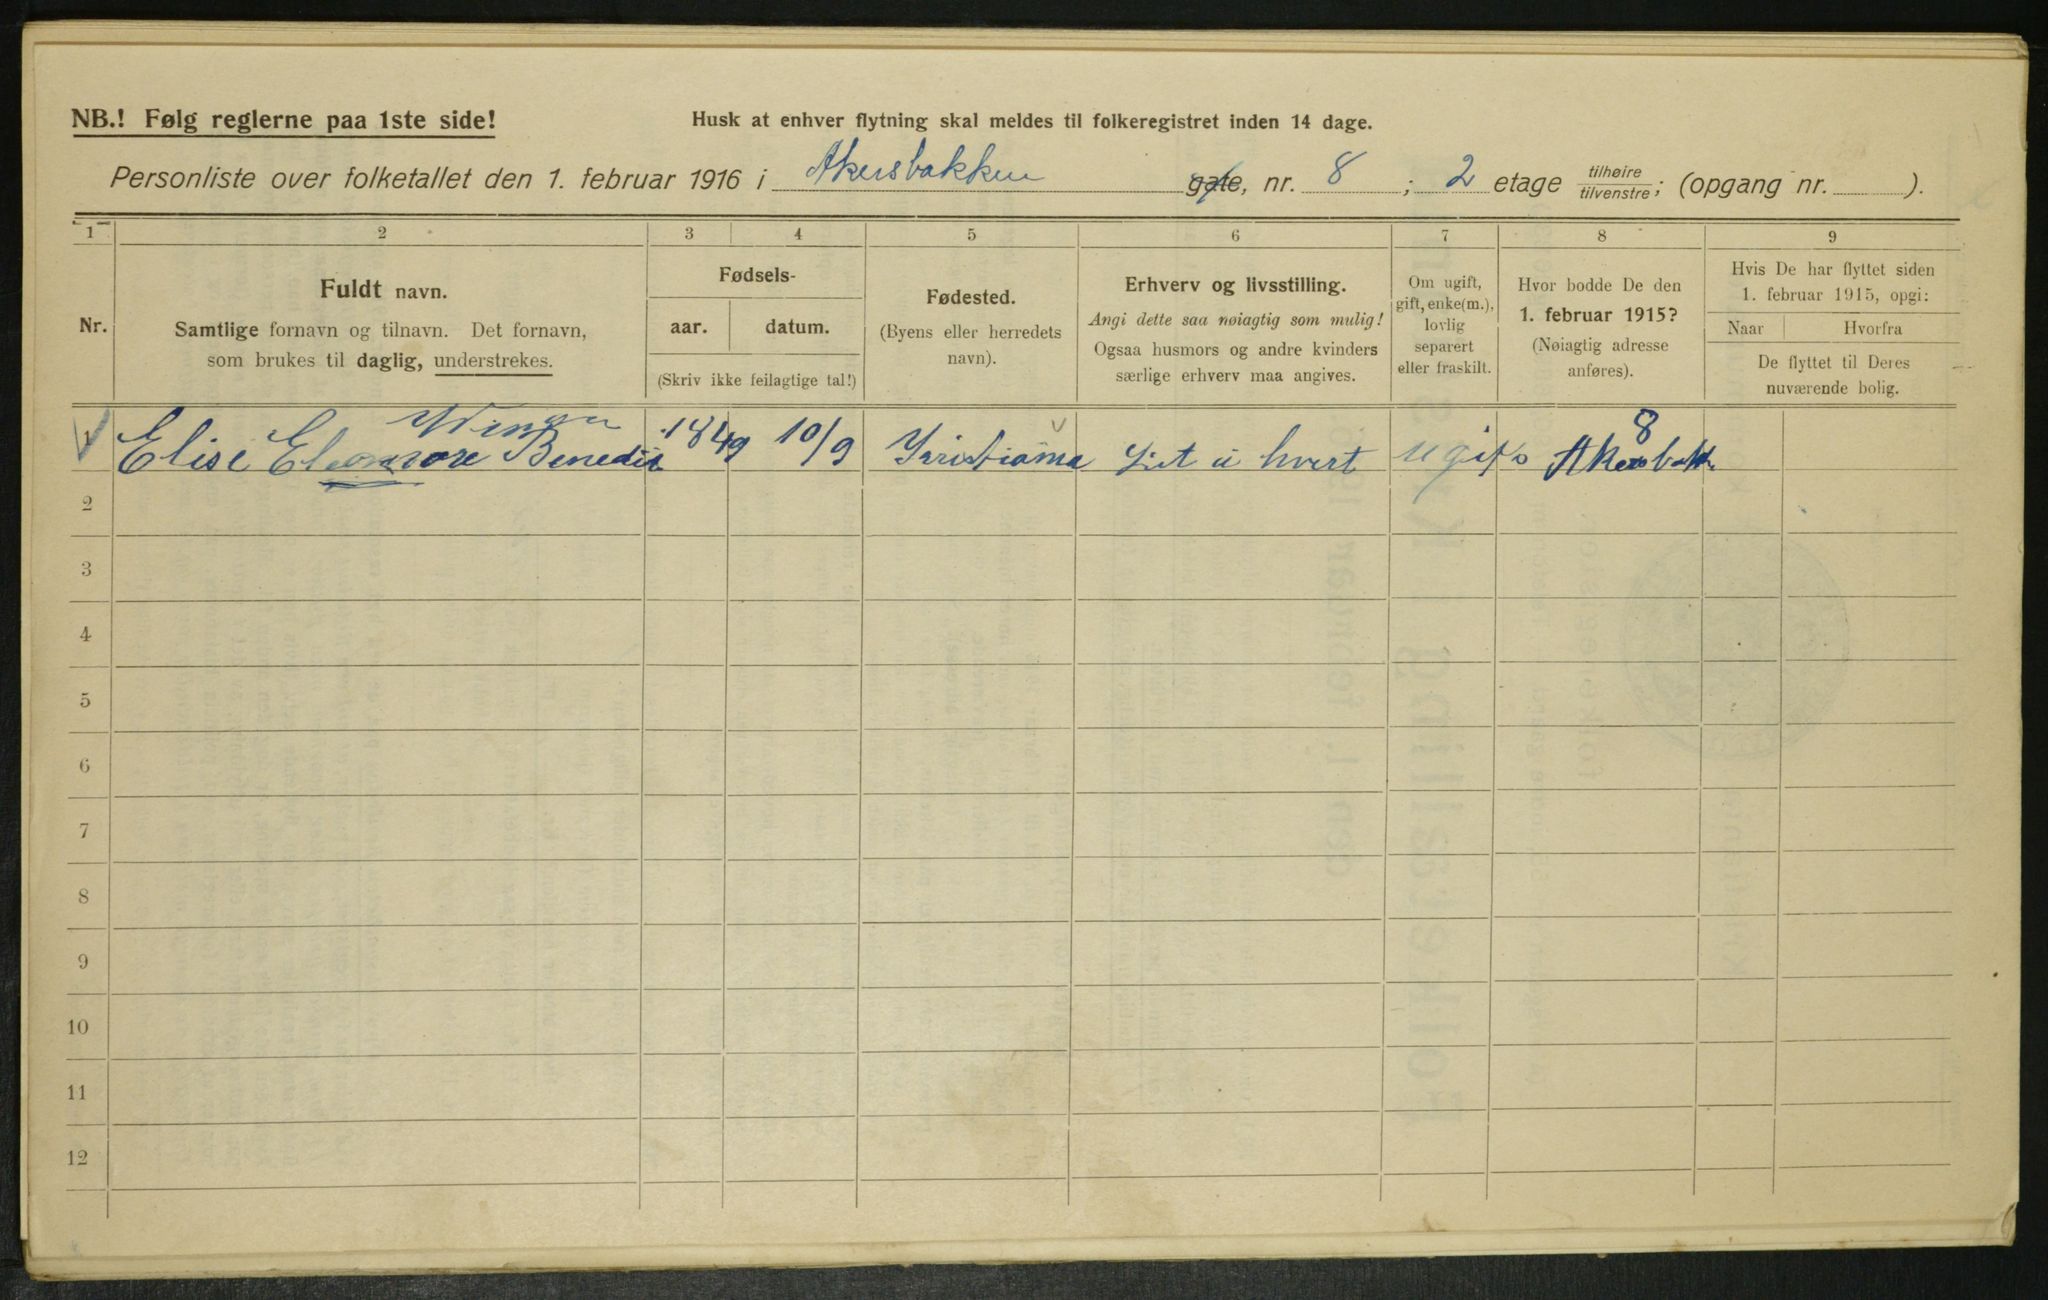 NB.! Følg reglerne paa 1ste side!
Husk at enhver flytning skal meldes til folkeregistret inden 14 dage.
Personliste over folketallet den 1. februar 1916 i Akersbakken gate, nr. 8 ; 2 etage tilhøire tilvenstre; (opgang nr. ).
1 2 3 4 5 6 7 8 9
Nr.
Fuldt navn.
Samtlige fornavn og tilnavn. Det fornavn,
som brukes til daglig, understrekes.
Fødsels-
aar. datum.
(Skriv ikke feilagtige tal!)
Fødested.
(Byens eller herredets
navn).
Erhverv og livsstilling.
Angi dette saa nøiagtig som mulig!
Ogsaa husmors og andre kvinders
særlige erhverv maa angives.
Om ugift,
gift, enke(m.),
lovlig
separert
eller fraskilt.
Hvor bodde De den
1. februar 1915?
(Nøiagtig adresse
anføres).
Hvis De har flyttet siden
1. februar 1915, opgi:
Naar Hvorfra
De flyttet til Deres
nuværende bolig.
8
1 Elise Eleonore Benedik 1849 10/9 Kristiania hvert ugift Akersbak
2
3
4
5
6
7
8
9
10
11
12